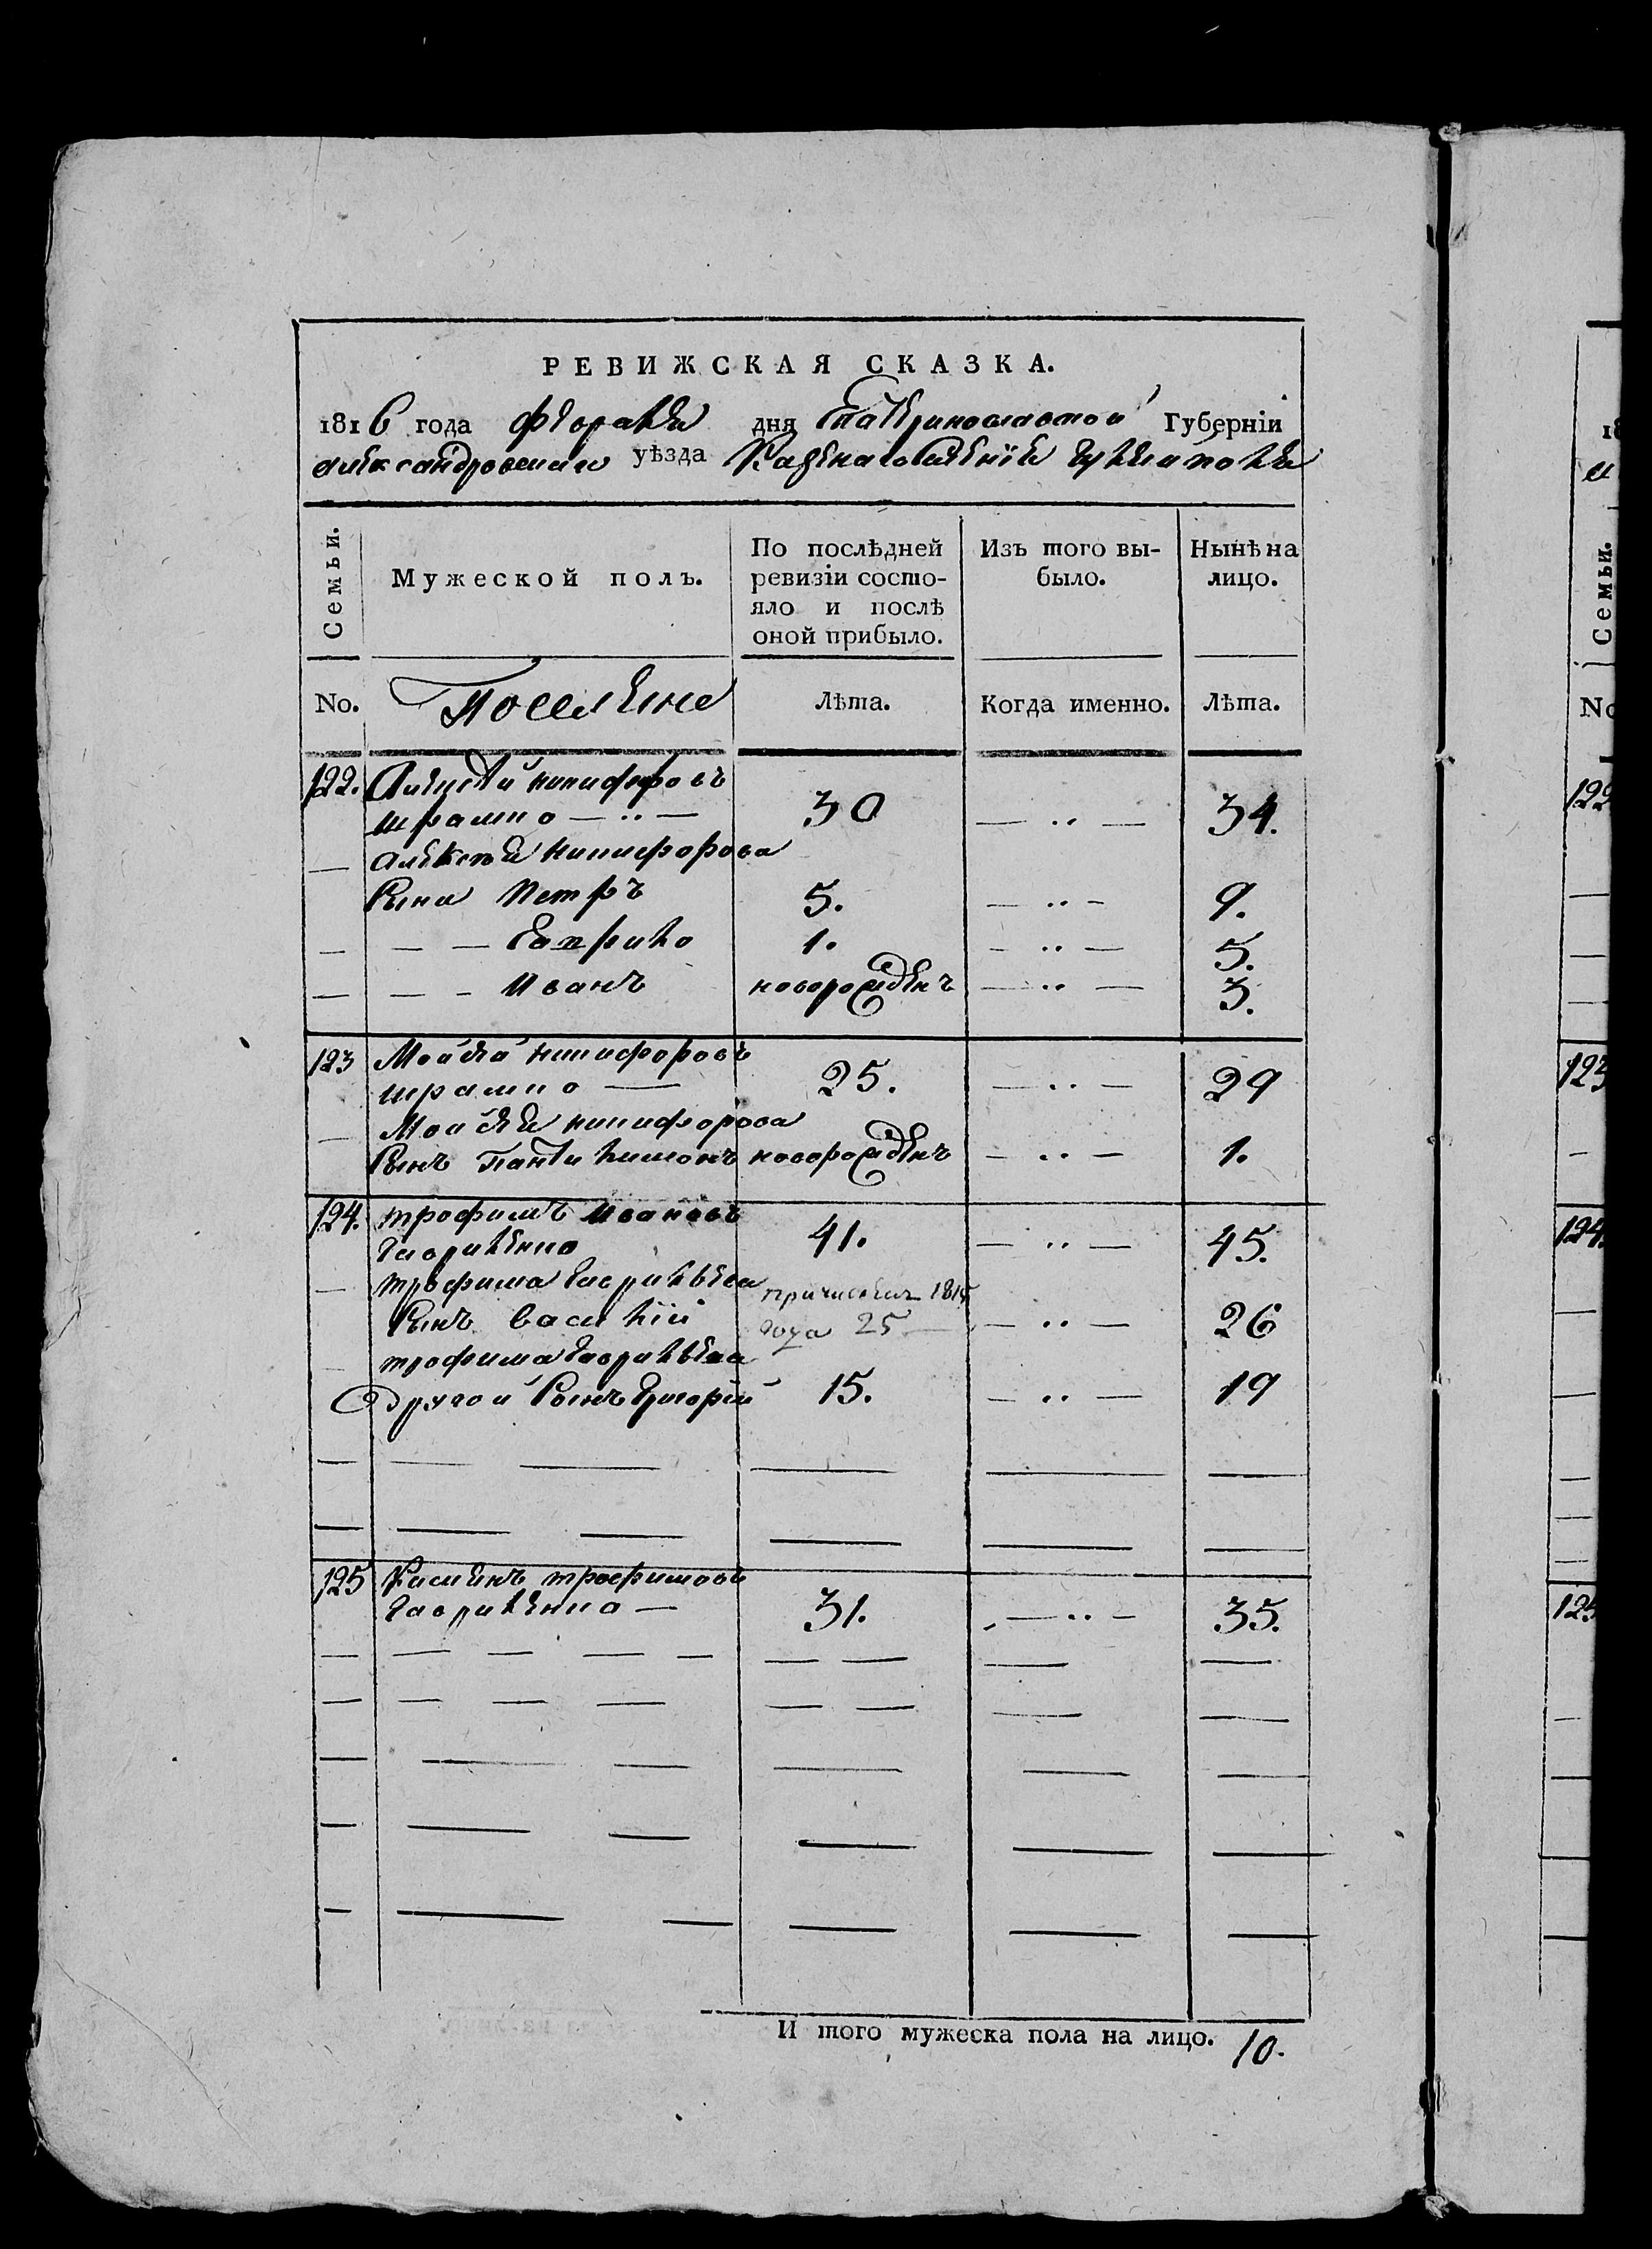 РЕВИЖСКАЯ СКАЗКА.
1816 года февраля дня Екатеринославской Губерніи
александровскаго уѣзда Казеннаго селенія
Семьи. Мужеской полъ. По послѣдней ревизіи состояло и послѣ оной прибыло. Изъ того выбыло. Нынѣ на лицо.
No. Поселяне Лѣта. Когда именно. Лѣта.
122. Алексѣй никифоровъ
шрамко — .. — 30 — .. — 34.
— алексѣя никифорова
сына Петръ 5. — .. — 9.
— — — Гаврило 1. — .. — 5.
— — — Иванъ новорожденъ — .. — 3.
123 Мойсѣй никифоровъ
шрамко — 25. — .. — 29
— Мойсѣя никифорова
сынъ Пантилимонъ новорожденъ — .. — 1.
124. трофимъ Ивановъ
Гавриленко 41. — .. — 45.
— трофима Гаврилѣва причисленъ 1815
сынъ василій года 25 — — .. — 26
— трофима Гаврилѣва
другой сынъ Григорій 15. — .. — 19
125 трофимовъ
Гавриленко — 31. — .. — 35.
И того мужеска пола на лицо. 10.
18
Семьи.
No
122
123
124
125